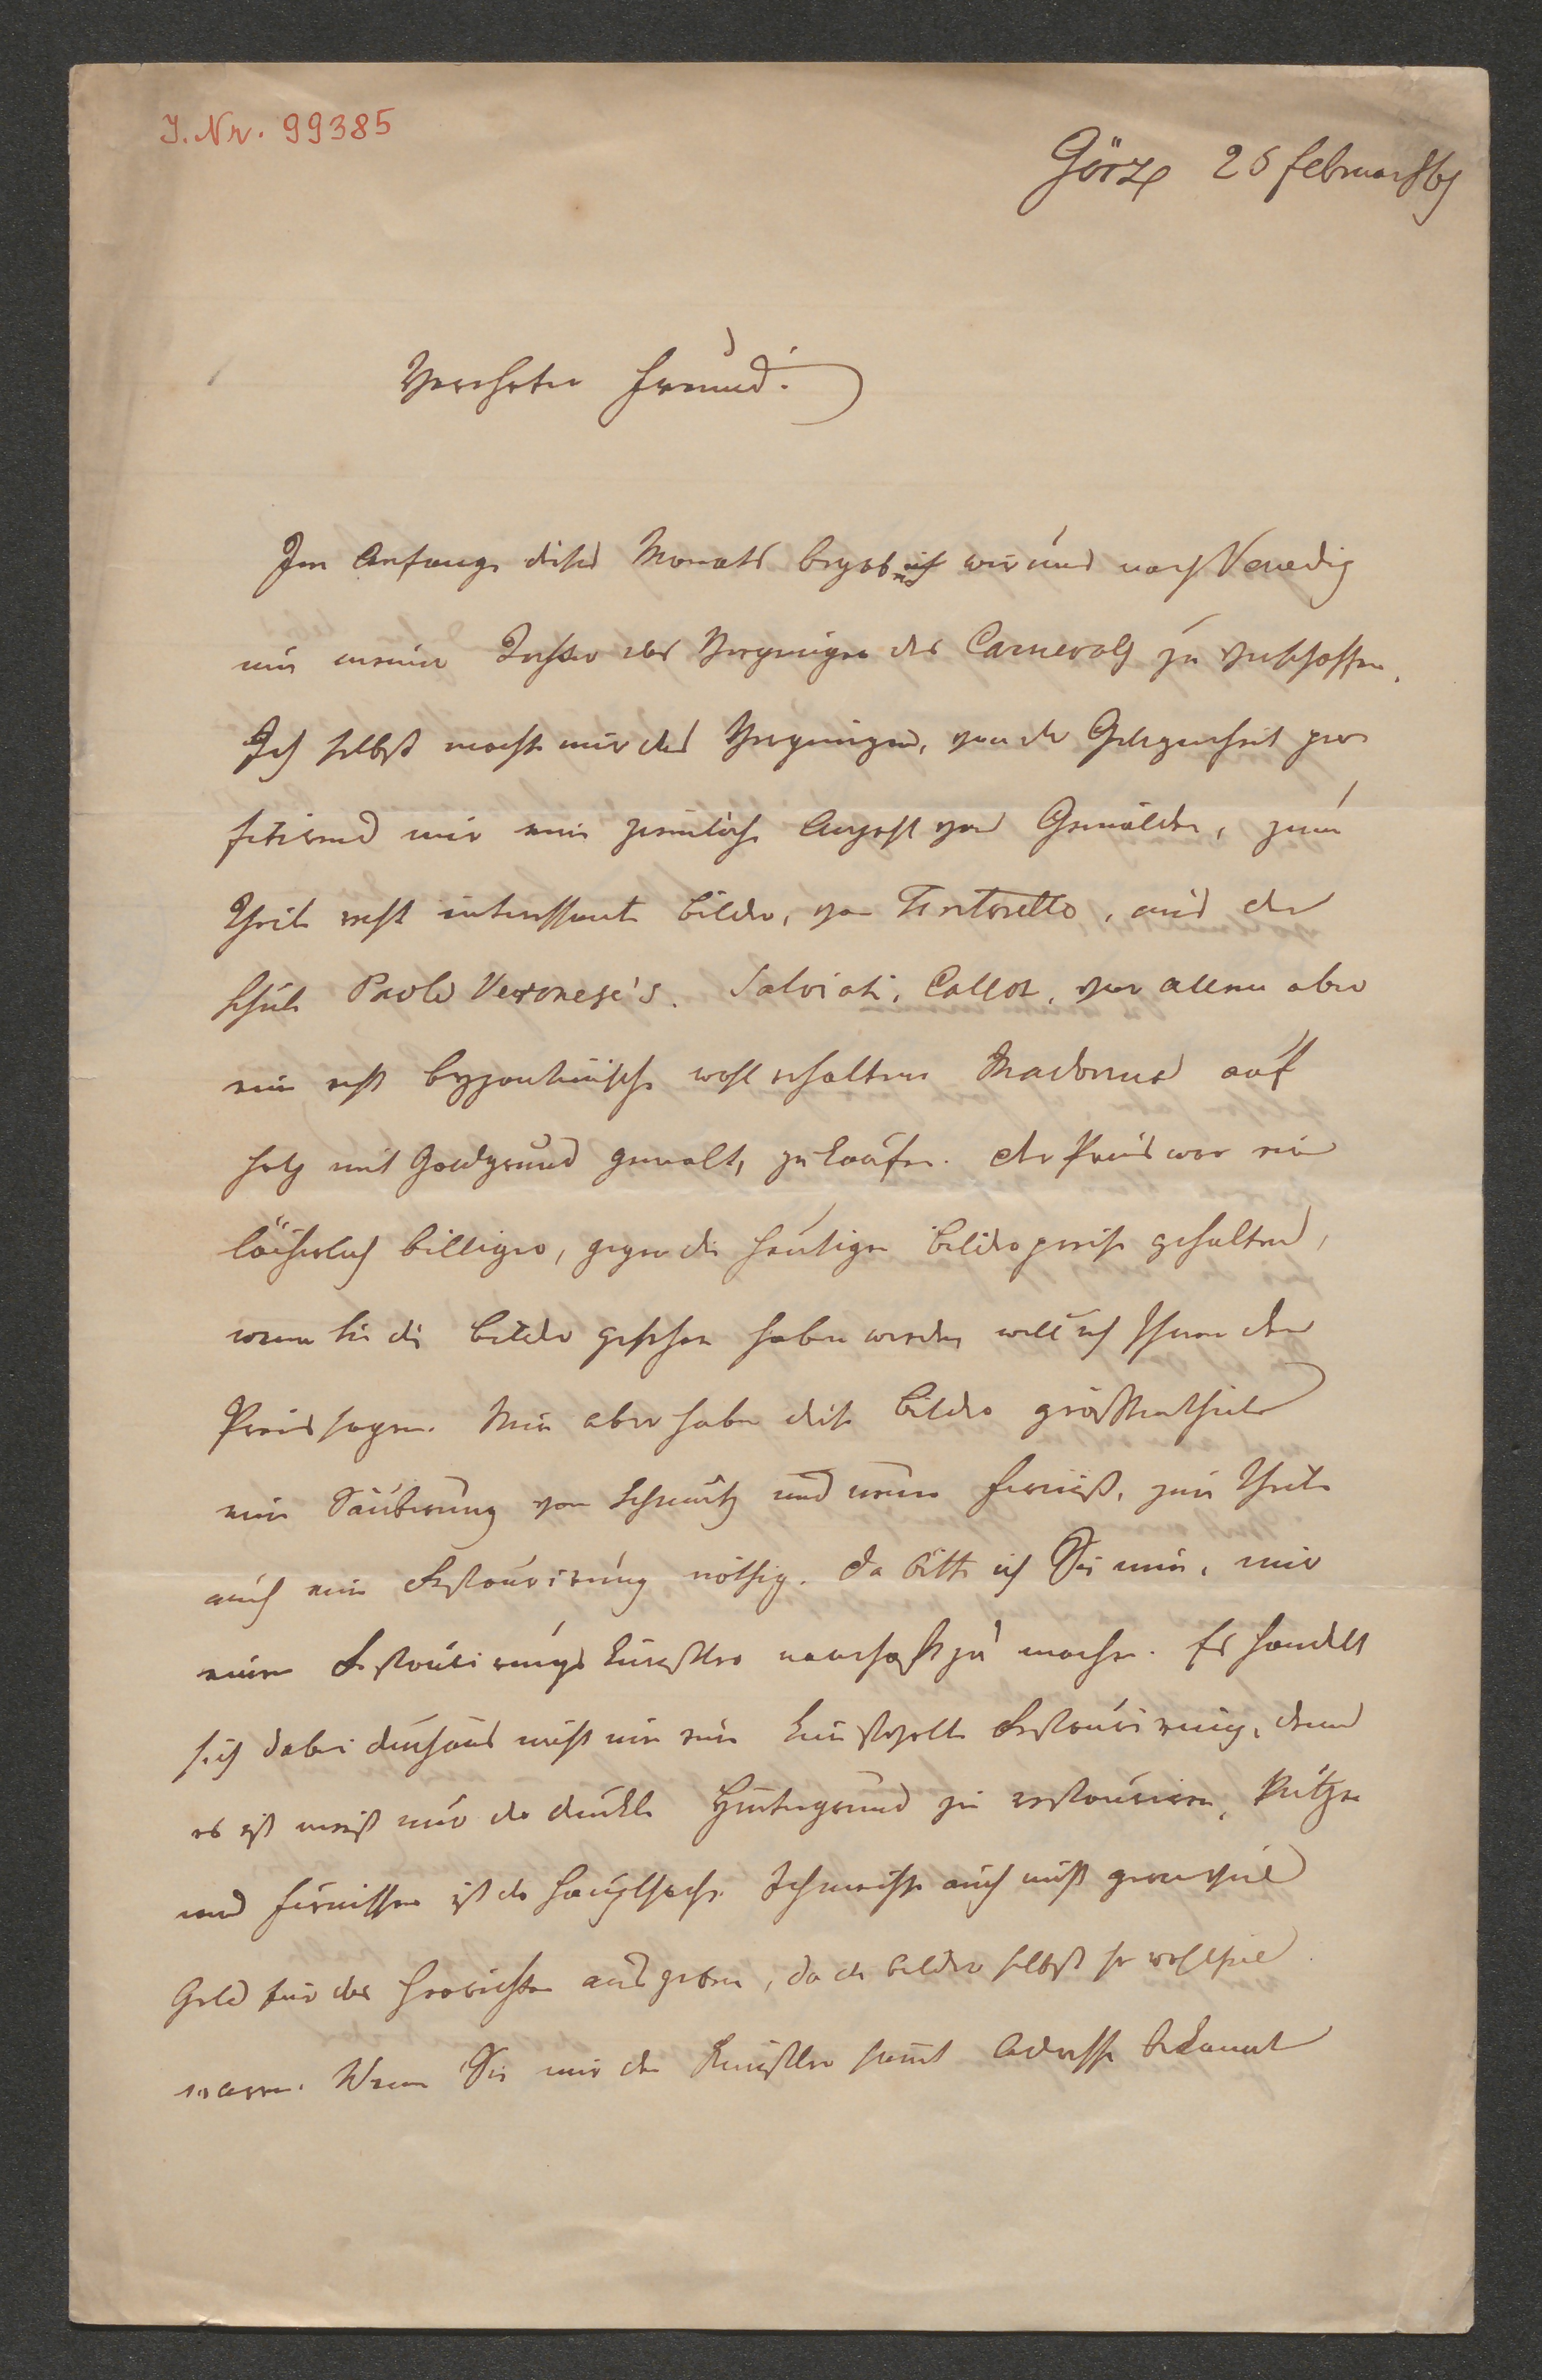 J. Nr. 99385
Görz 26 februar 869
Verehrter Freund!
Im Anfange dieses Monats begaben wir uns nach Venedig
um meiner Tochter das Vergnügen des Carnevals zu verschaffen.
Ich selbst machte mir das Vergnügen, von der Gelegenheit pro-
fitirend mir eine ziemliche Anzahl von Gemälden, zum
Theile recht interessante Bilder, von Tintoretto, aus der
Schule Paolo Veronese's. Salviati, Callot, vor allem aber
eine echt byzantinische wohl erhaltene Madonna auf
Holz mit Goldgrund gemalt, zu kaufen. Der Preis war ein
lächerlich billiger, gegen die heutigen Bilderpreise gehalten,
wenn Sie die Bilder gesehen haben werden will ich Ihnen den
Preis sagen. Nun aber haben diese Bilder größtentheils
eine Säuberung von Schmutz und neuen Firniß, zum Theile
auch eine Restaurirung nöthig. Da bitte ich Sie nun, mir
einen Restaurirungskünstler namhaft zu machen. Es handelt
sich dabei durchaus nicht um eine kunstvolle Restaurirung, denn
es ist meist nur der dunkle Hintergrund zu restauriren, Putzen
und firnissen ist die Hauptsache. Ich möchte auch nicht gerne viel
Geld für das Herrichten ausgeben, da die Bilder selbst so wohlfeil
waren. Wenn Sie mir den Künstler sammt Adresse bekannt